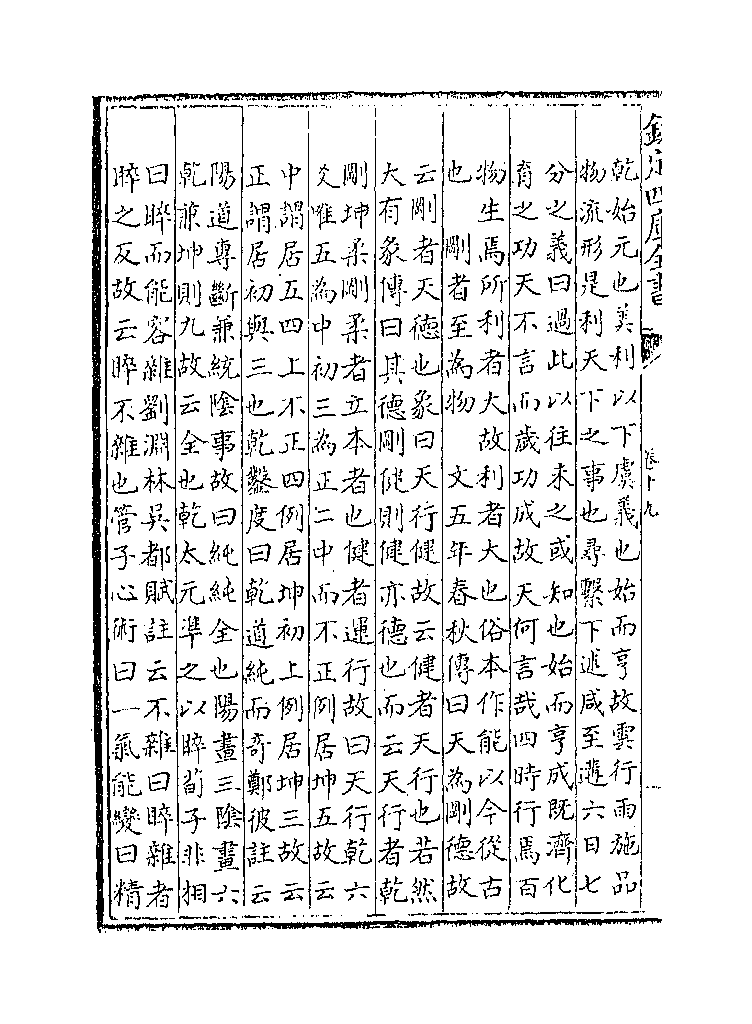 欽定四庫全書
卷十九
乾始元也美利以下虞義也始而亨故雲行雨施品
物流形是利天下之事也尋繫下述咸至遯六日七
分之義曰過此以往未之或知也始而亨成既濟化
育之功天不言而歲功成故天何言哉四時行焉百
物生焉所利者大故利者大也俗本作能以今從古
也　剛者至為物　文五年春秋傳曰天為剛德故
云剛者天德也象曰天行健故云健者天行也若然
大有彖傳曰其德剛健則健亦德也而云天行者乾
剛坤柔剛柔者立本者也健者運行故曰天行乾六
爻唯五為中初三為正二中而不正例居坤五故云
中謂居五四上不正四例居坤初上例居坤三故云
正謂居初與三也乾鑿度曰乾道純而奇鄭彼註云
陽道專斷兼統陰事故曰純純全也陽畫三陰畫六
乾兼坤則九故云全也乾太元準之以睟荀子非相
曰睟而能容雜劉淵林吳都賦註云不雜曰睟雜者
睟之反故云睟不雜也管子心術曰一氣能變曰精